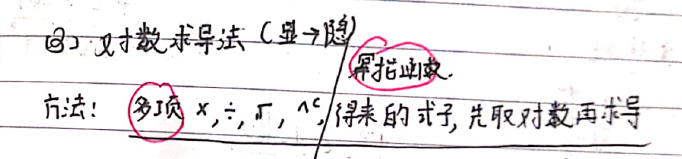 ③ 对数求导法（显→隐）
幂指函数.
方法: 多项 ×, ÷, √, ^c, 得来的式子, 先取对数再求导